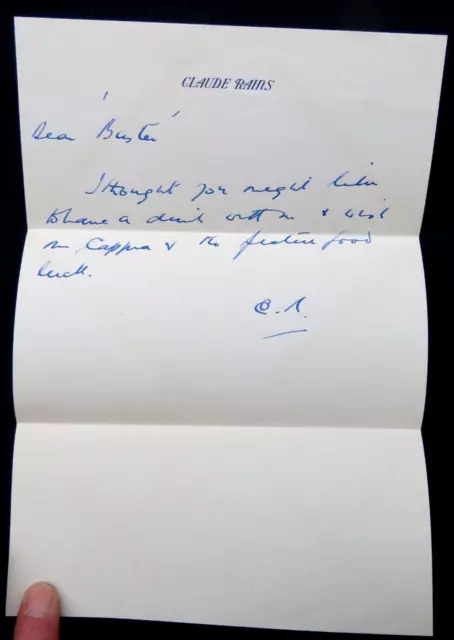 CLAUDE RAINS
Dear "Buster"
I thought you might like
to have a drink with me & wish
Mr Cappra & the picture good
luck.
C. R.